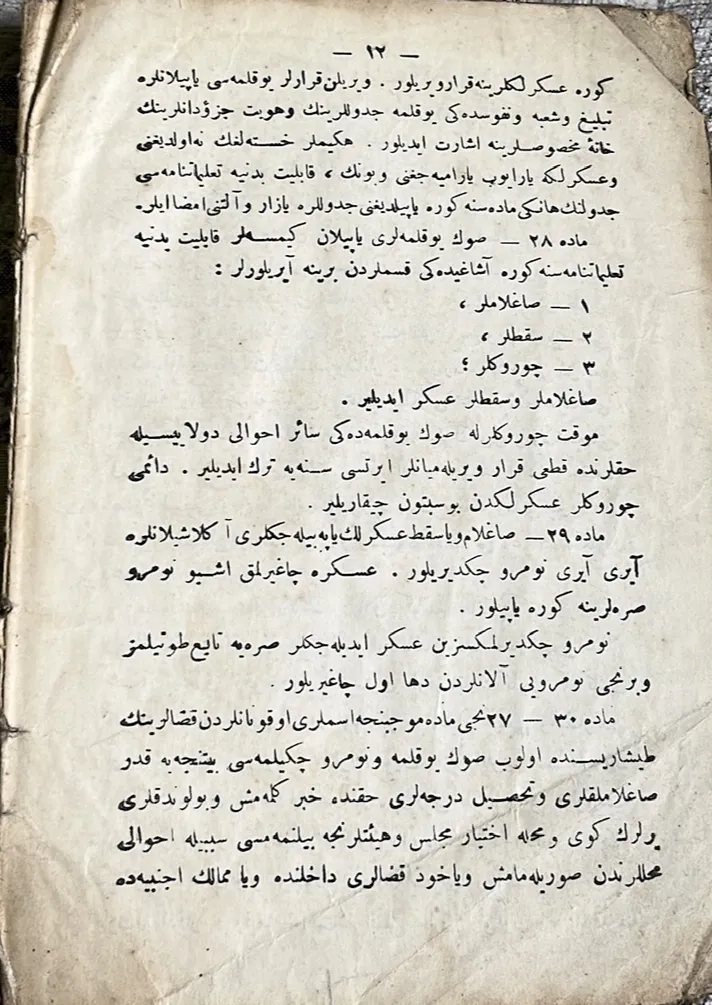 — ١٢ —
كوره عسكرلكلرينه قرار ويريلور . ويريلن قرارلر يوقلمه‌سى ياپيلانلره
تبليغ وشعبه ونفوسده‌كى يوقلمه جدوللرينك وهويت جزؤدانلرينك
خانهٔ مخصوصلرينه اشارت ايديلور . هكيملر خسته‌لغك نه اولديغنى
وعسكرلكه يارايوب يارامیه‌جغنى وبونك ، قابليت بدنيه تعليماتنامه‌سى
جدولنك هانكى ماده‌سنه كوره ياپيلديغنى جدوللره يازار وآلتنى امضا ايلر.
ماده ٢٨ — صوك يوقلمه‌لرى ياپيلان كيمسه‌لر قابليت بدنيه
تعليماتنامه‌سنه كوره آشاغيده‌كى قسملردن برينه آيريلورلر :
١ — صاغلاملر ،
٢ — سقطلر ،
٣ — چوروكلر ؛
صاغلاملر وسقطلر عسكر ايديلير .
موقت چوروكلرله صوك يوقلمه‌ده‌كى سائر احوالى دولاييسيله
حقلرنده قطعى قرار ويريله‌ميانلر ايرتسى سنه‌يه ترك ايديلير . دائمى
چوروكلر عسكرلكدن بوسبتون چيقاريلير .
ماده ٢٩ — صاغلام ويا سقط عسكرلك ياپه‌بيله‌جكلرى آكلاشيلانلره
آيرى آيرى نومرو چكديريلور . عسكره چاغيرلمق اشبو نومرو
صره‌لرينه كوره ياپيلور .
نومرو چكديرلمكسزين عسكر ايديله‌جكلر صره‌يه تابع طوتيلمز
وبرنجى نومرويى آلانلردن دها اول چاغيريلور .
ماده ٣٠ — ٢٧نجى ماده موجبنجه اسملرى اوقونانلردن قضالرينك
طيشاريسنده اولوب صوك يوقلمه ونومرو چكيلمه‌سى بيتنجه‌يه قدر
صاغلاملقلرى وتحصيل درجه‌لرى حقنده خبر كلمه‌مش وبولوندقلرى
يرلرك كوى ومحله اختيار مجلس وهيئتلرنجه بيلنمه‌مسى سببيله احوالى
محللرندن صوريله‌مامش وياخود قضالرى داخلنده ويا ممالك اجنبيه‌ده